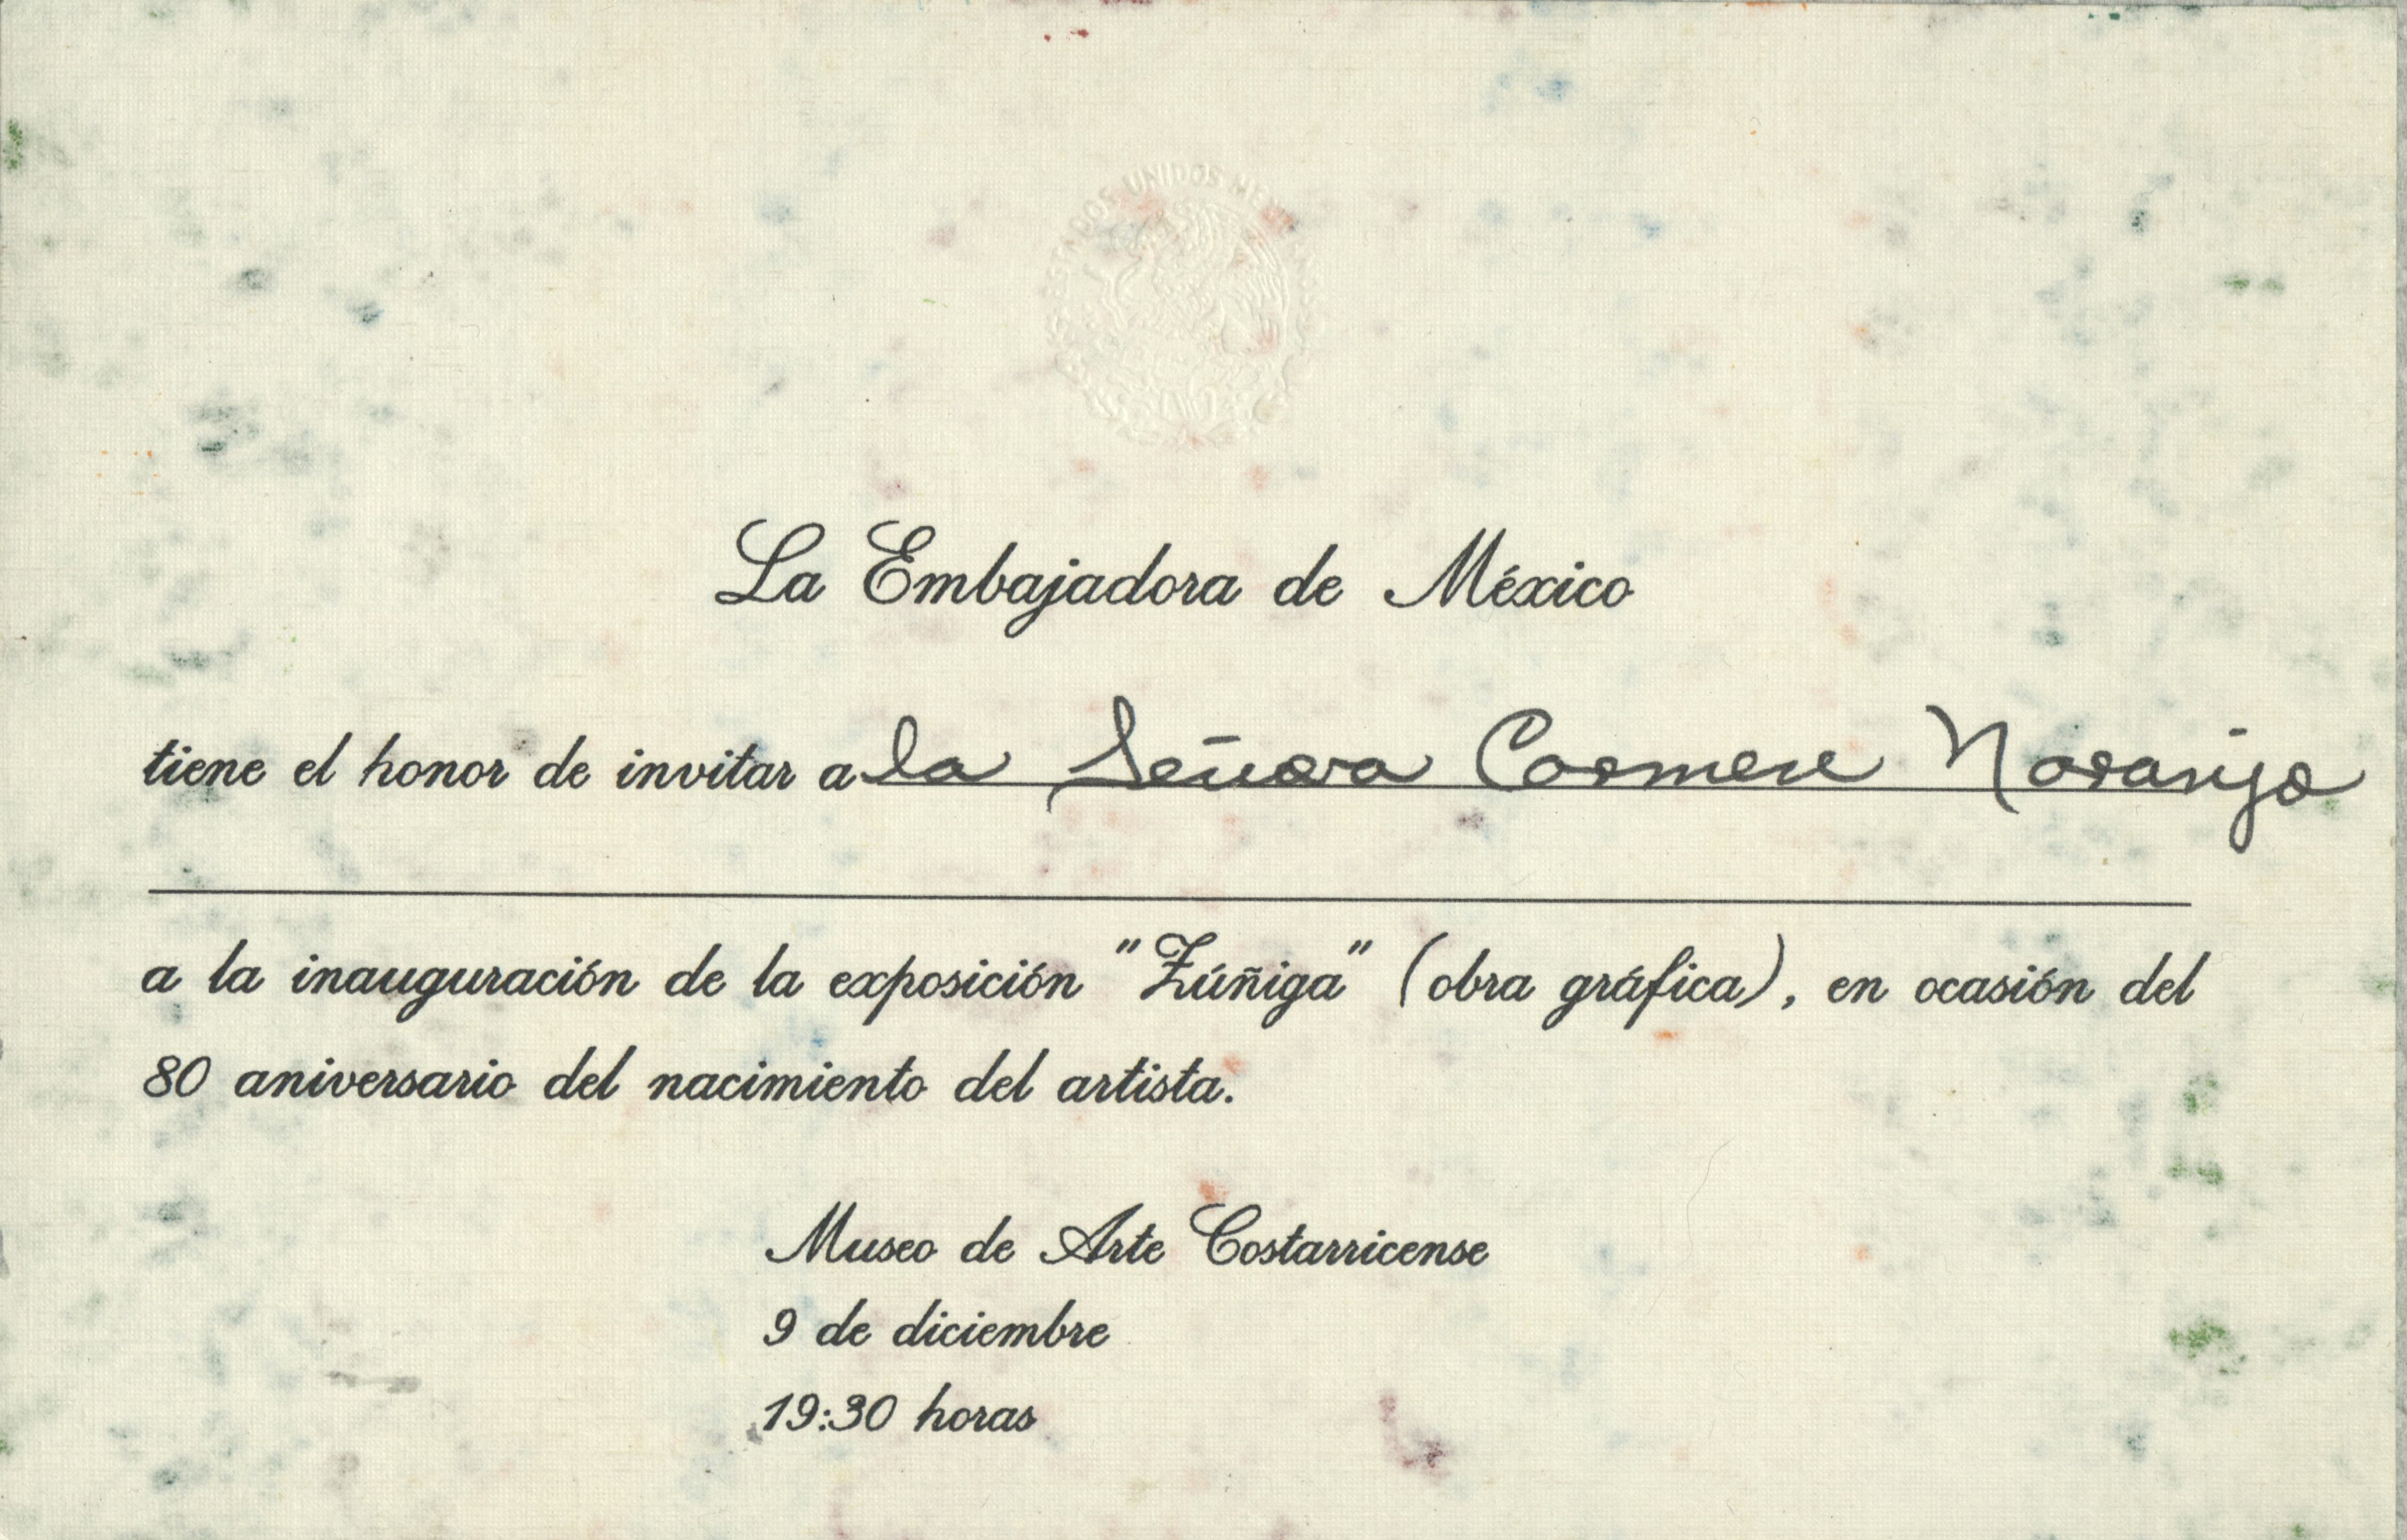 ESTADOS UNIDOS MEXICANOS
La Embajadora de México
tiene el honor de invitar a la Señora Carmen Naranjo
a la inauguración de la exposición "Zúñiga" (obra gráfica), en ocasión del
80 aniversario del nacimiento del artista.
Museo de Arte Costarricense
9 de diciembre
19:30 horas